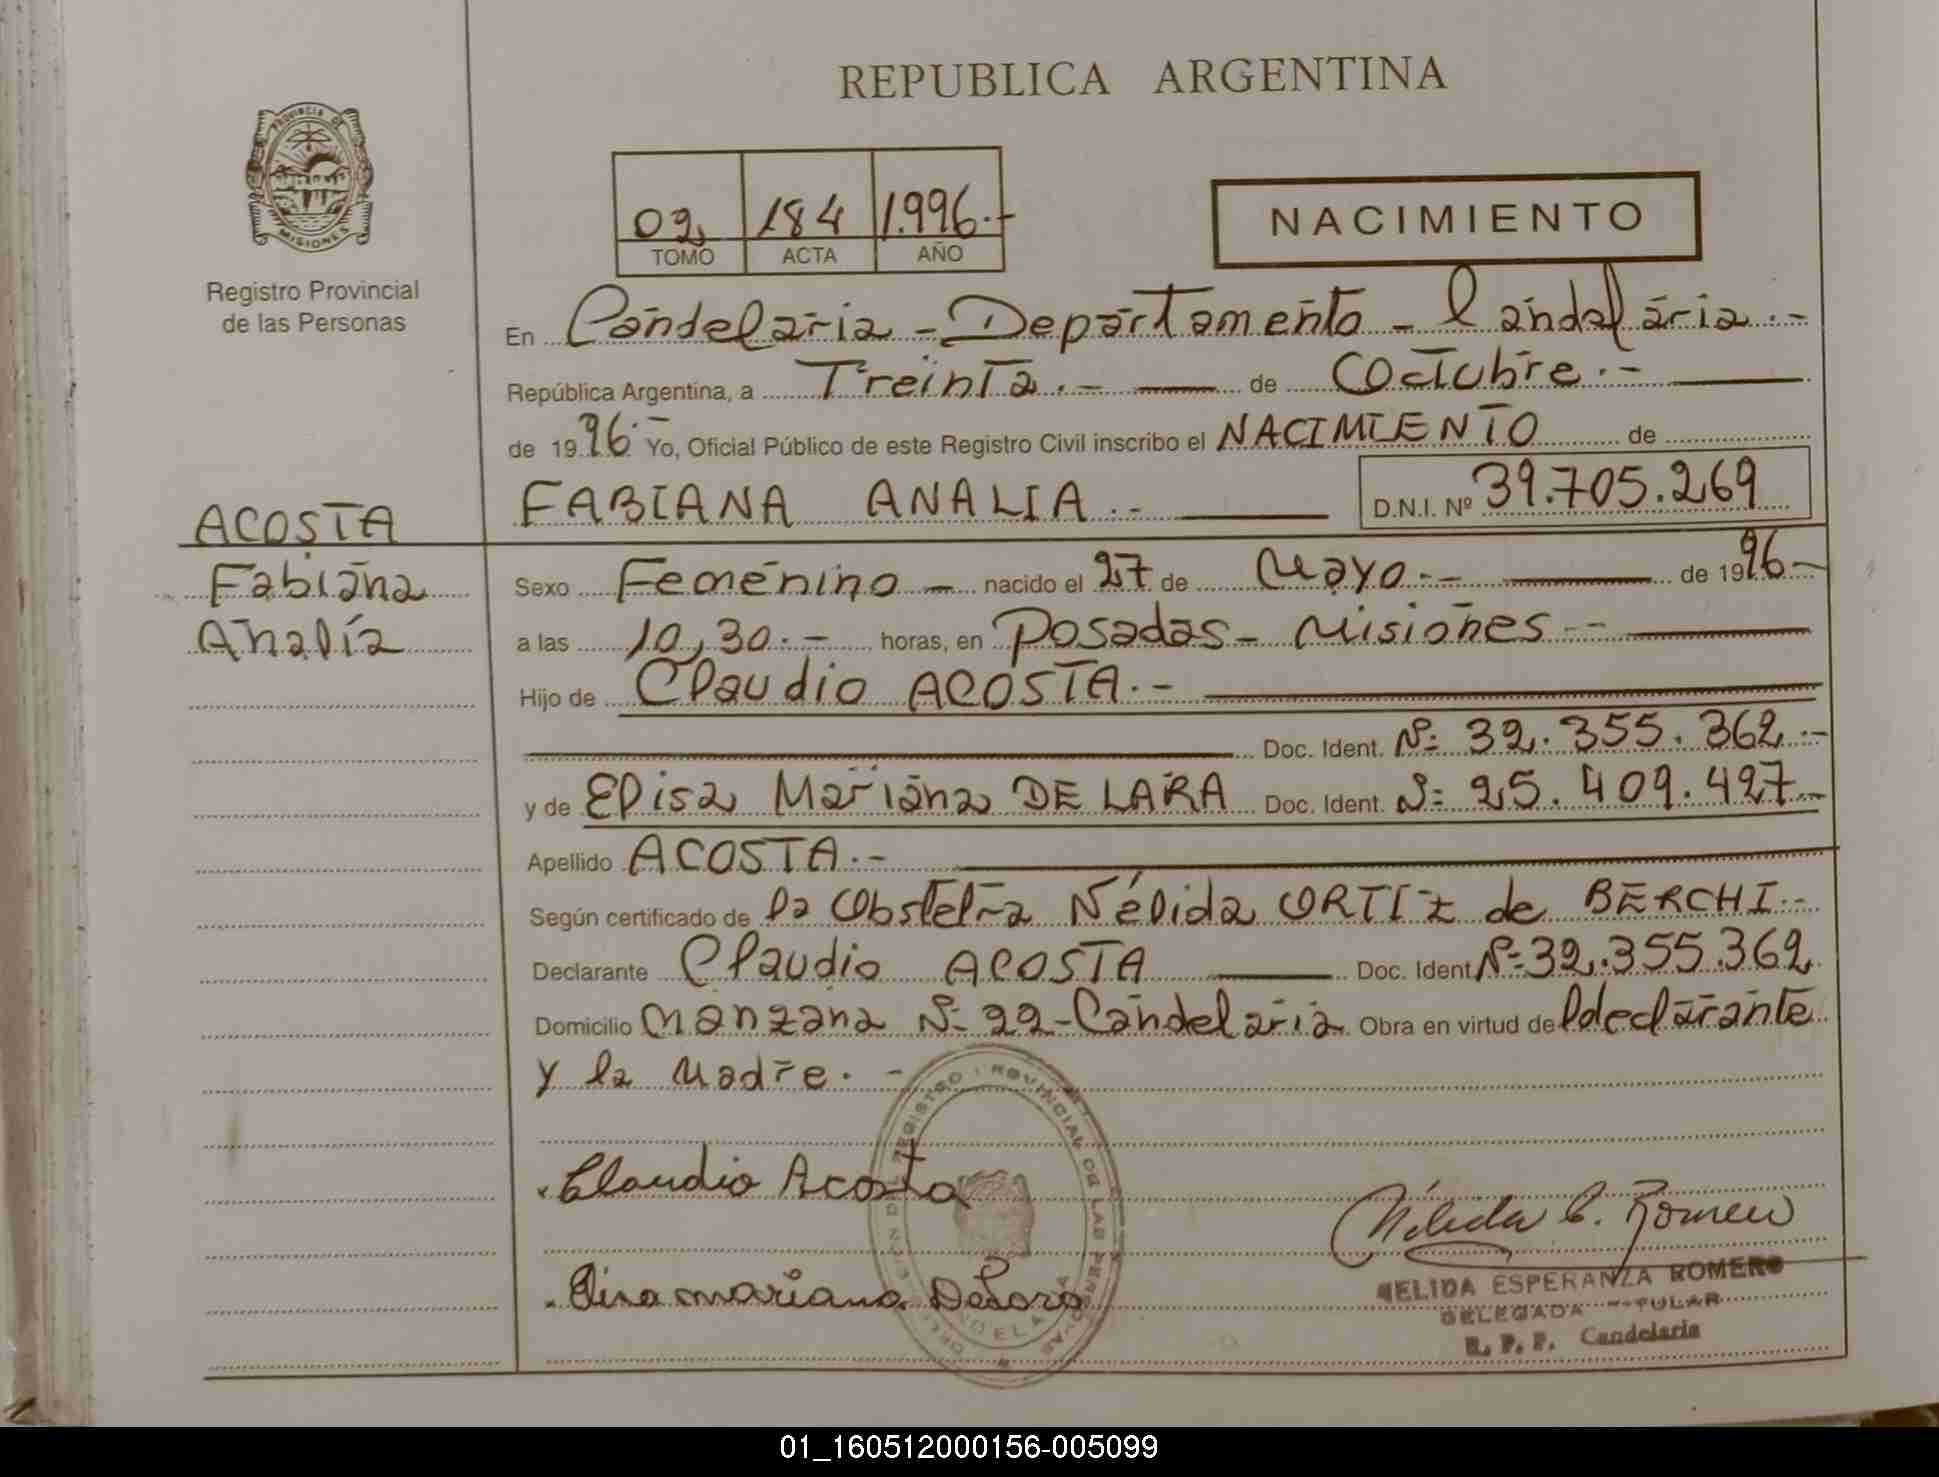 REPUBLICA ARGENTINA
PROVINCIA DE
MISIONES
Registro Provincial
de las Personas
02 184 1.996.-
TOMO ACTA AÑO
NACIMIENTO
En Candelaria - Departamento - Candelaria.-
República Argentina, a Treinta.- de Octubre.-
de 1996.- Yo, Oficial Público de este Registro Civil inscribo el NACIMIENTO de
FABIANA ANALIA.- D.N.I. Nº 39.705.269
ACOSTA
Fabiana
Analía
Sexo Femenino - nacido el 27 de Mayo.- de 1996-
a las 10,30.- horas, en Posadas - Misiones -
Hijo de Claudio ACOSTA.-
Doc. Ident. Nº 32.355.362.-
y de Elisa Mariana DE LARA Doc. Ident. Nº 25.409.427.-
Apellido ACOSTA.-
Según certificado de la Obstetra Nélida ORTIZ de BERCHI.-
Declarante Claudio ACOSTA Doc. Ident. Nº 32.355.362
Domicilio Manzana Nº 22-Candelaria. Obra en virtud de l declarante
y la Madre.-
Claudio Acosta
Elisa mariana De Lara
REGISTRO PROVINCIAL DE LAS PERSONAS
Nélida E. Romero
NELIDA ESPERANZA ROMERO
DELEGADA TITULAR
R. P. P. Candelaria
01_160512000156-005099